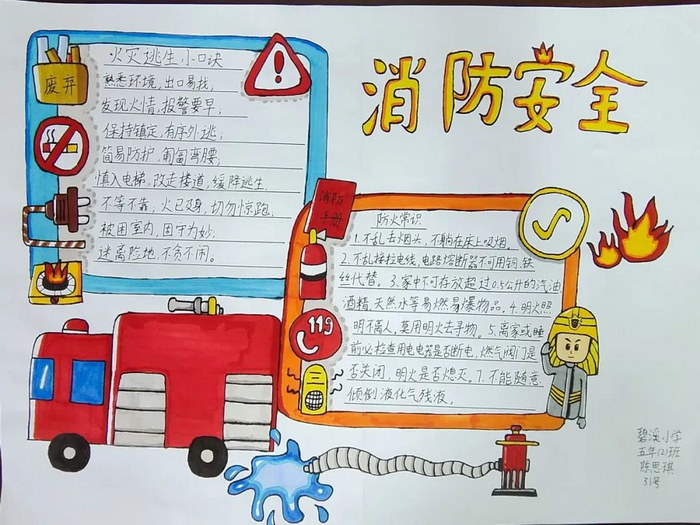 消防安全
废弃
火灾逃生小口诀
熟悉环境,出口易找,
发现火情,报警要早,
保持镇定,有序外逃,
简易防护,匍匐弯腰,
慎入电梯,改走楼道,缓降逃生,
不等不靠,火已及身,切勿惊跑,
被困室内,固守为妙,
迷离险地,不贪不闹。
消防
手册
防火常识
1.不乱丢烟头,不躺在床上吸烟。
2.不乱接拉电线,电路熔断器不可用铜、铁
丝代替。3.家中不可存放超过0.5公升的汽油
酒精、天然水等易燃易爆物品。4.明火照
明不离人,莫用明火去寻物。5.离家或睡
前必检查用电电器是否断电,燃气阀门是
否关闭,明火是否熄灭。7.不能随意
倾倒液化气残液。
119
碧溪小学
五年(2)班
陈思琪
31号